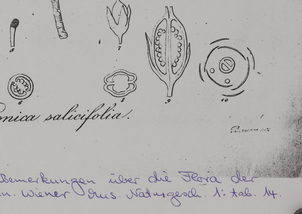 7
8
9
10
onica salicifolia.
Bemerkungen über die Flora der
n. Wiener Mus. Naturgesch. 1: tab. 14.